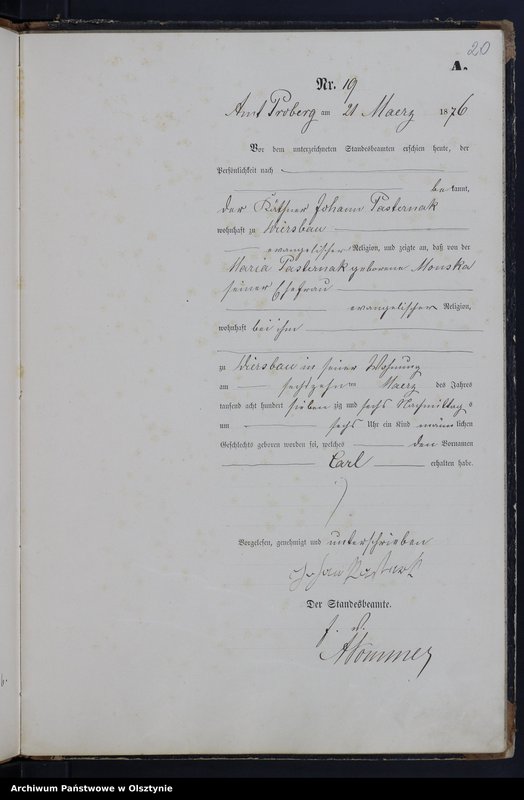 20
A.
Nr. 19
Amt Proberg am 21 Maerz 1876
Vor dem unterzeichneten Standesbeamten erschien heute, der
Persönlichkeit nach
be kannt,
der Käthner Johann Pasternak
wohnhaft zu Wiersbau
evangelischer Religion, und zeigte an, daß von der
Maria Pasternak geborene Monska
seiner Ehefrau
evangelischer Religion,
wohnhaft bei ihm
zu Wiersbau in seiner Wohnung
am sechszehn ten Maerz des Jahres
tausend acht hundert sieben zig und sechs Nachmittag s
um sechs Uhr ein Kind männ lichen
Geschlechts geboren worden sei, welches den Vornamen
Carl erhalten habe.
Vorgelesen, genehmigt und unterschrieben
Der Standesbeamte.
Archiwum Państwowe w Olsztynie